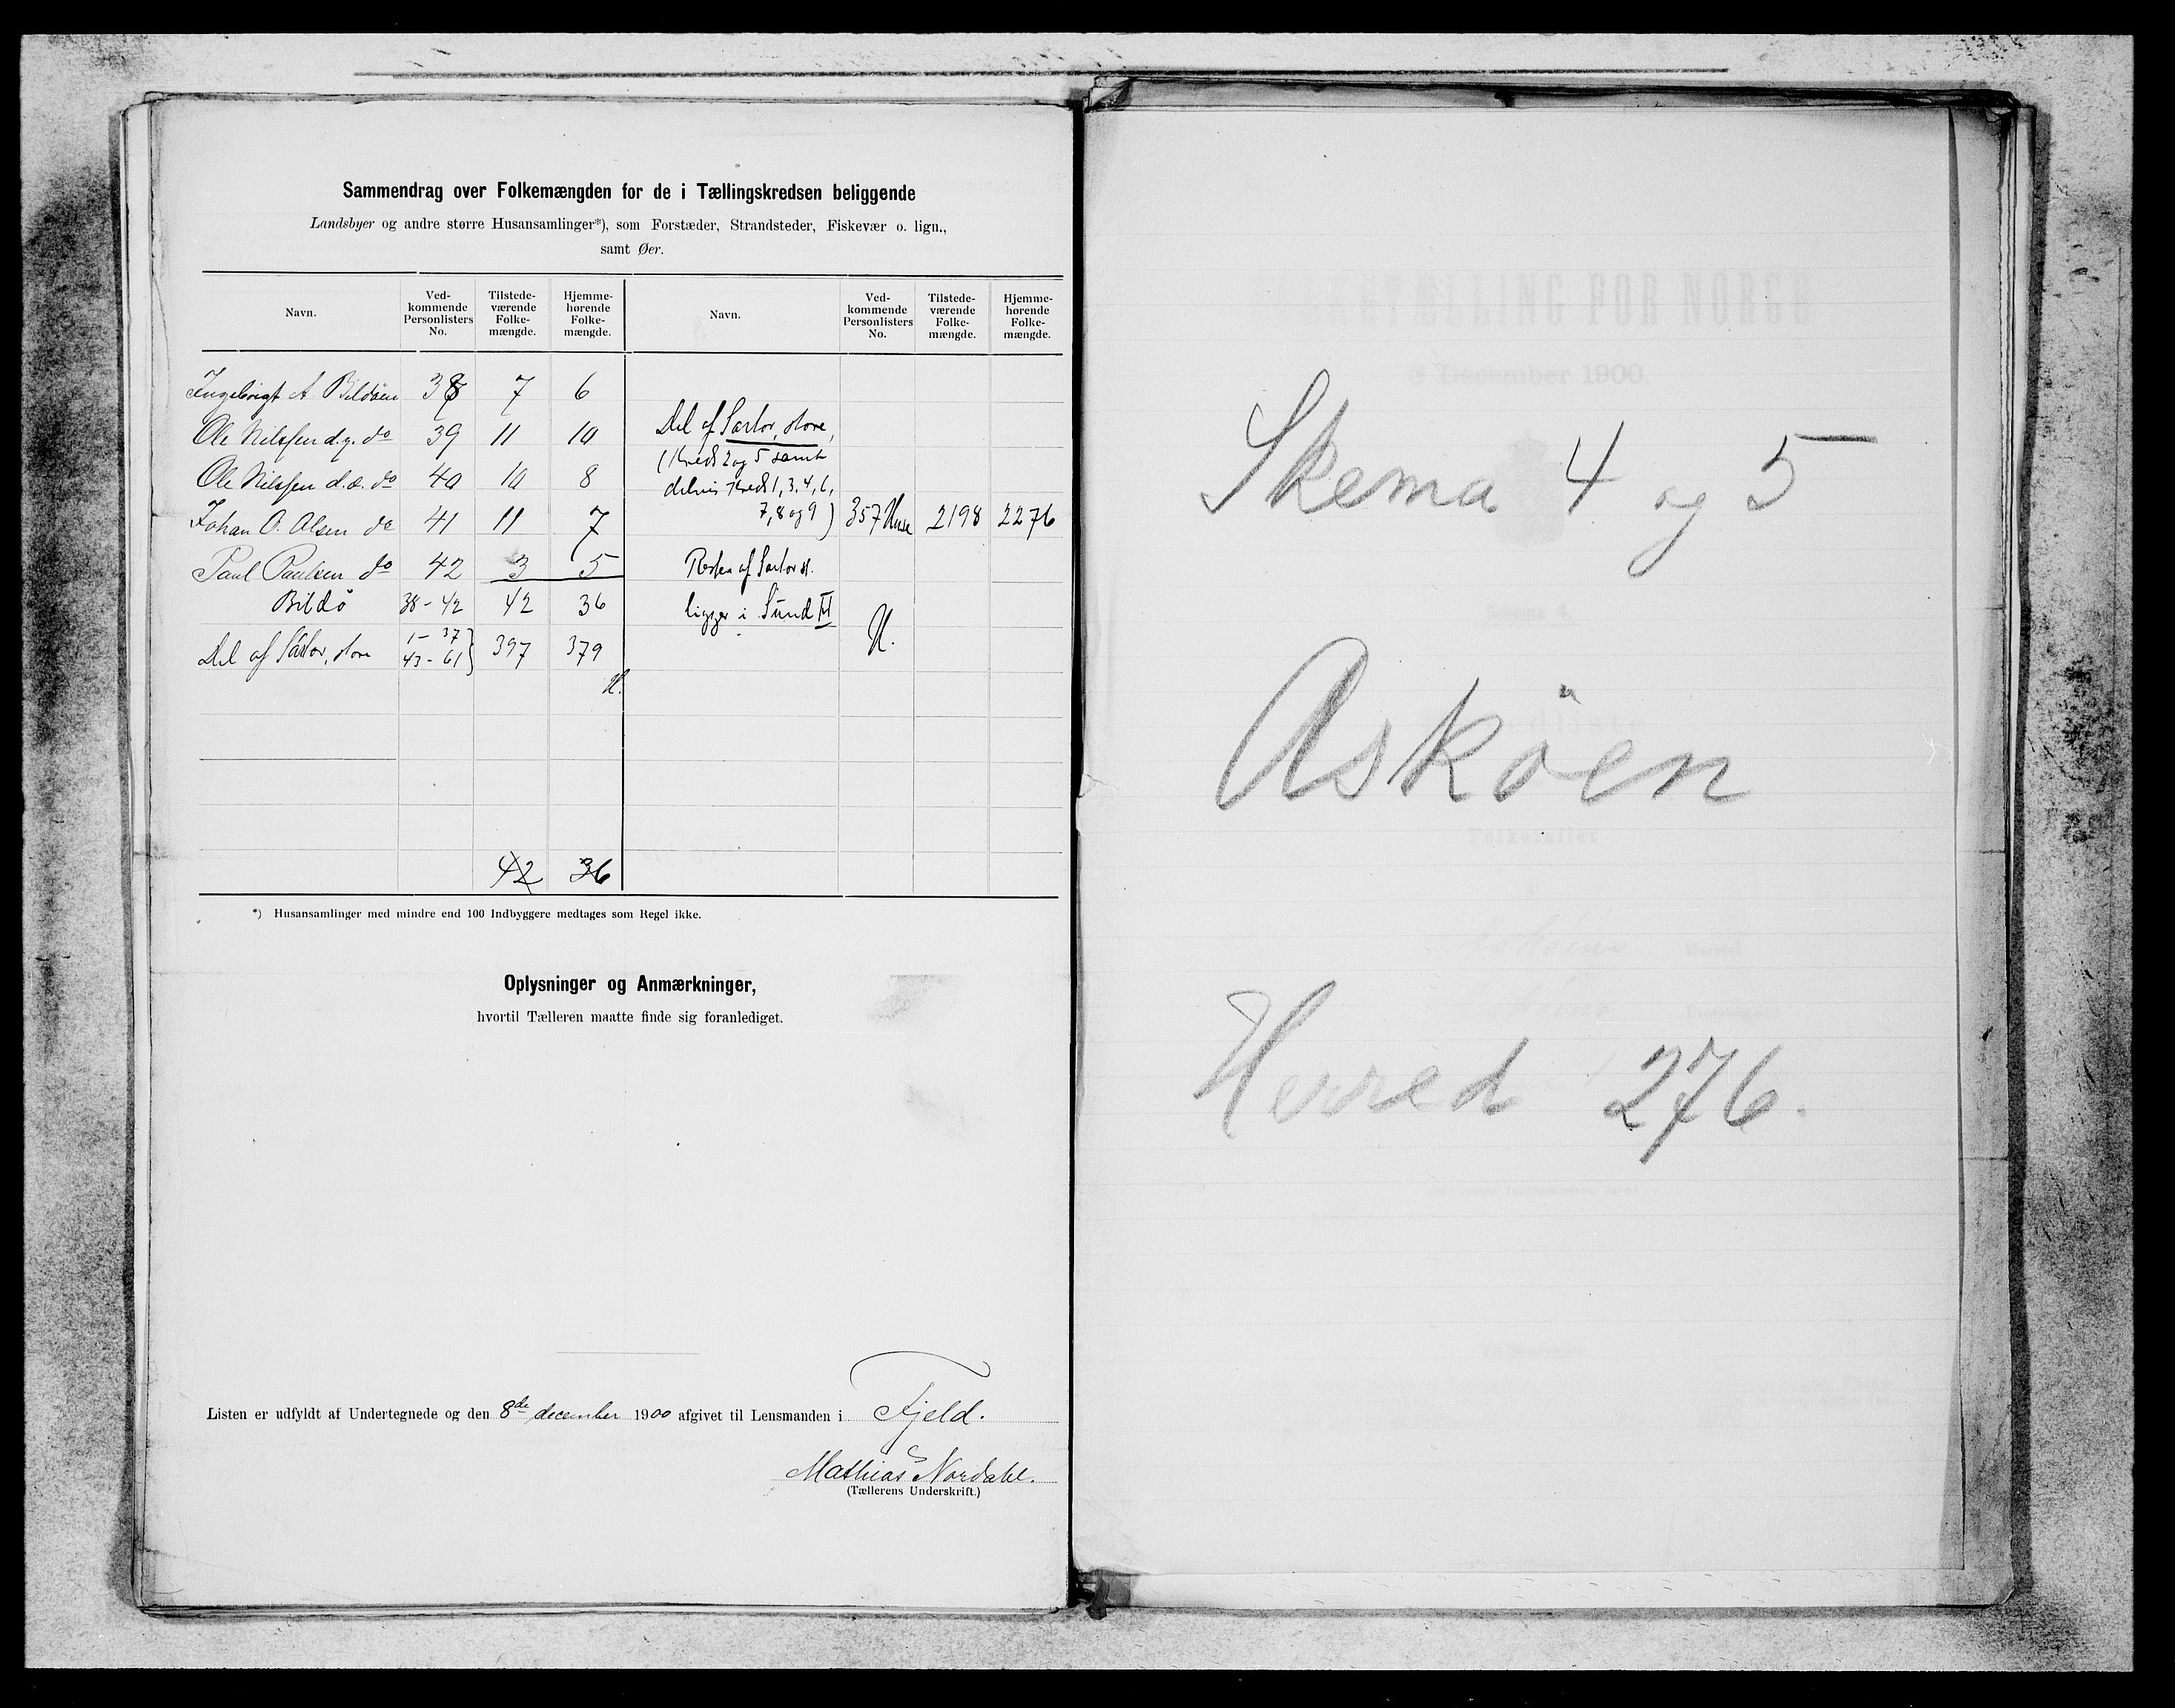 Sammendrag over Folkemængden for de i Tællingskredsen beliggende
Landsbyer og andre større Husansamlinger*), som Forstæder, Strandsteder, Fiskevær o. lign.,
samt Øer.
Navn. Ved-kommende Personlisters No. Tilstede-værende Folke-mængde. Hjemme-hørende Folke-mængde. Navn. Ved-kommende Personlisters No. Tilstede-værende Folke-mængde. Hjemme-hørende Folke-mængde.
Ingebrigt A. Bildöen 38 7 6
Ole Nilssen d.y. do 39 11 10
Ole Nilssen d.æ. do 40 10 8
Johan O. Olsen do 41 11 7
Paul Paulsen do 42 3 5
Bildö 38-42 42 36
Del af Sartor, store 1-37 43-61 } 397 379
H.
42 36
Del af Sartor, store,
(Kreds 2 og 5 samt
delvis Kreds 1, 3, 4, 6,
7, 8 og 9) 357 Huse 2198 2276
Resten af Sartor st.
ligger i Sund
H.
*) Husansamlinger med mindre end 100 Indbyggere medtages som Regel ikke.
Oplysninger og Anmærkninger,
hvortil Tælleren maatte finde sig foranlediget.
Listen er udfyldt af Undertegnede og den 8de december 1900 afgivet til Lensmanden i Fjeld.
Mathias Nordahl.
(Tællerens Underskrift.)
Skema 4 og 5
Asköen
Herred 276.
3 December 1900.